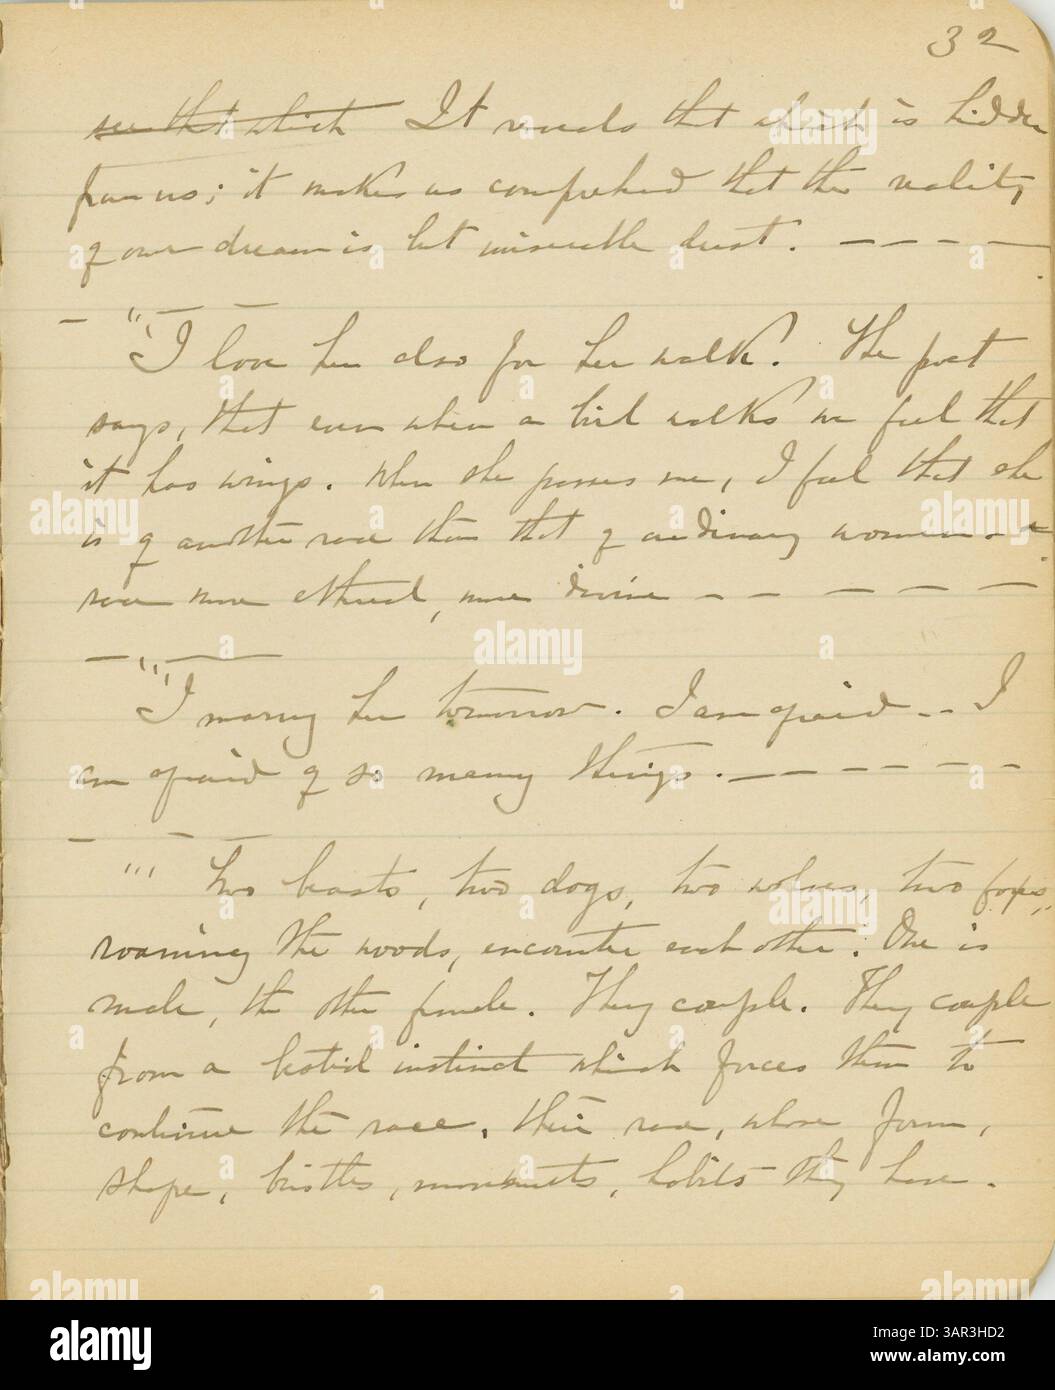 32
see that which It reveals that which is hidden
from us; it makes us comprehend that the reality
of our dream is but miserable dust. — — — —
— "'I love her also for her walk. The poet
says, that even when a bird walks we feel that
it has wings. When she passes me, I feel that she
is of another race than that of ordinary women — a
race more ethereal, more divine — — — — — —
— "'I marry her tomorrow. I am afraid -- I
am afraid of so many things. — — — — — —
"' Two beasts, two dogs, two wolves, two foxes,
roaming the woods, encounter each other. One is
male, the other female. They couple. They couple
from a bestial instinct which forces them to
continue the race, their race, whose form,
shape, bristles, movements, habits they have.
alamy
alamy
alamy
alamy
alamy
alamy
alamy
Image ID: 3AR3HD2
www.alamy.com